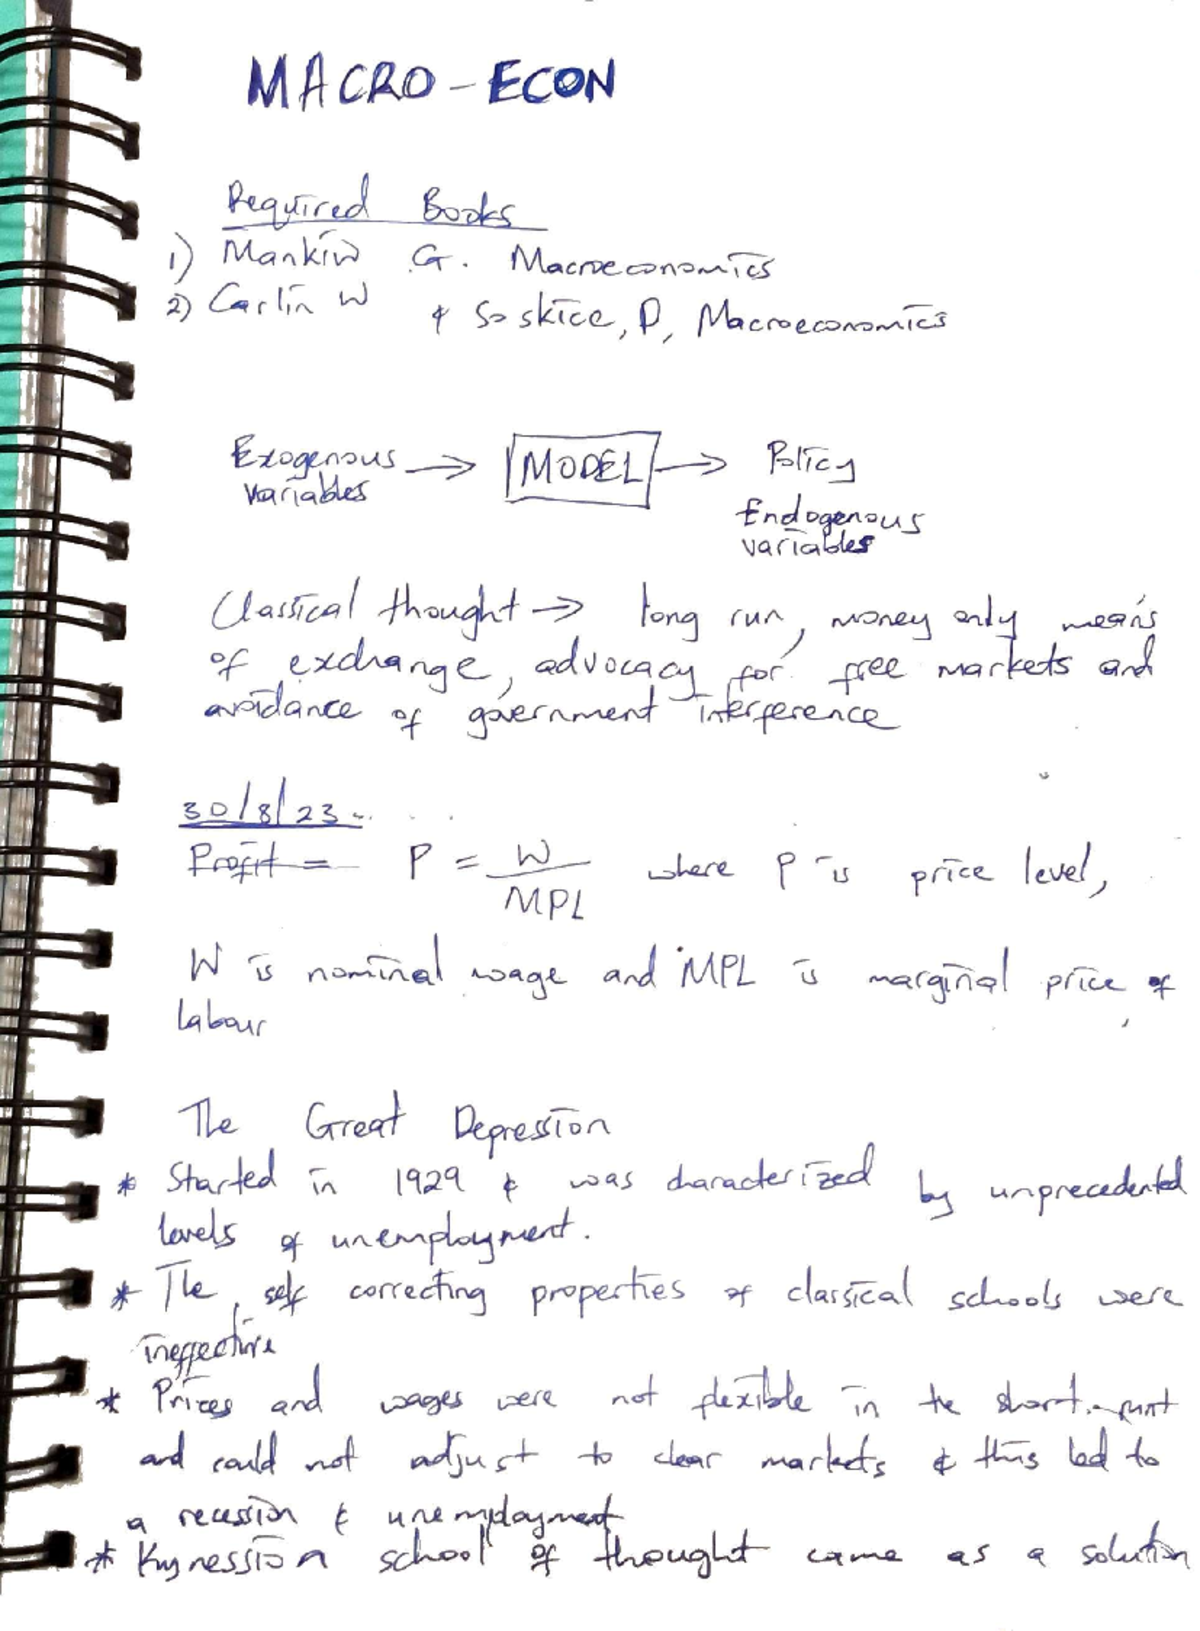 MACRO - ECON
Required Books
1) Mankiw G. Macroeconomics
2) Carlin W & Soskice, D, Macroeconomics
Exogenous variables → MODEL → Policy
Endogenous variables
Classical thought → long run, money only means
of exchange, advocacy for free markets and
avoidance of government interference
30/8/23
Profit = P = W/MPL where P is price level,
W is nominal wage and MPL is marginal price of
labour
The Great Depression
* Started in 1929 & was characterized by unprecedented
levels of unemployment.
* The self correcting properties of classical schools were
ineffective
* Prices and wages were not flexible in the short
and could not adjust to clear markets & this led to
a recession & unemployment
* school of thought came as a solution